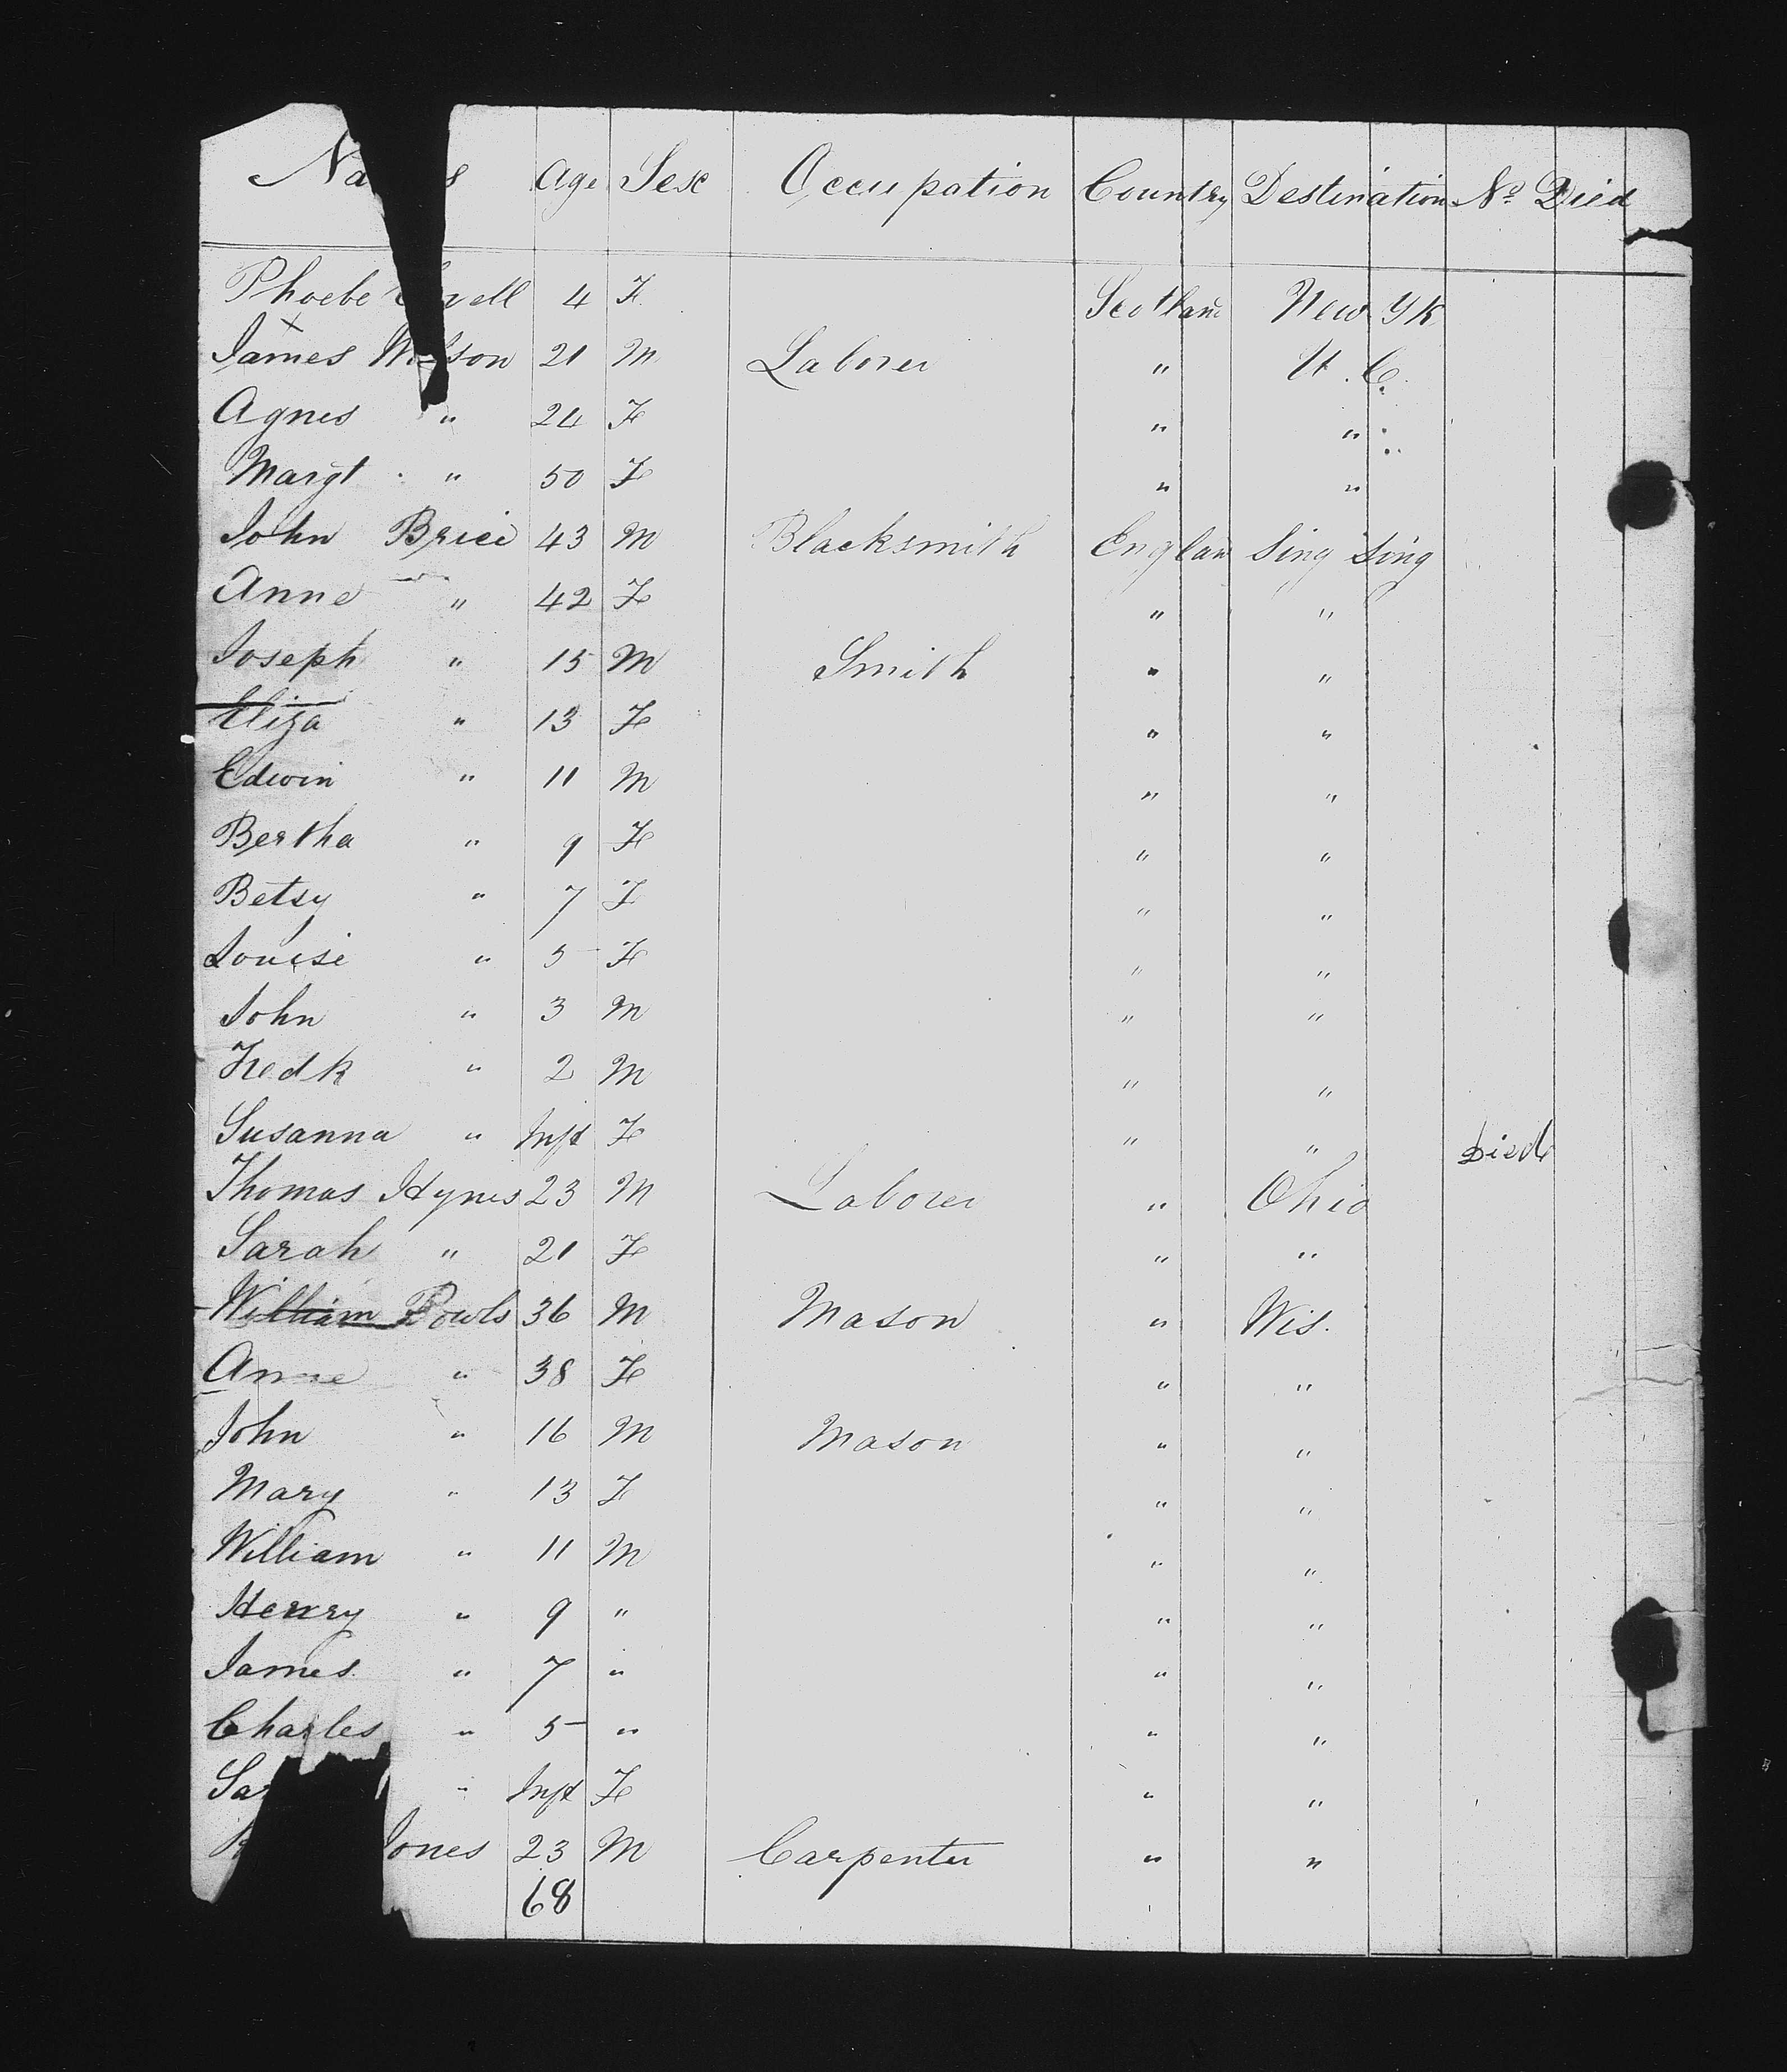 Na s Age Sex Occupation Country Destination No Died
Phoebe 4 F Scotland New Yk
James Wilson 21 M Laborer " U.C.
Agnes " 24 F " "
Margt " 50 F " "
John Brice 43 M Blacksmith Englan Sing Sing
Anne " 42 F " "
Joseph " 15 M Smith " "
Eliza " 13 F " "
Edwin " 11 M " "
Bertha " 9 F " "
Betsy " 7 F " "
Louise " 5 F " "
John " 3 M " "
Fredk " 2 M " "
Susanna " Inft F " " Died
Thomas Hynes 23 M Laborer " Ohio
Sarah " 21 F " "
William Powls 36 M Mason " Wis.
Anne " 38 F " "
John " 16 M Mason " "
Mary " 13 F " "
William " 11 M " "
Henry " 9 " " "
James " 7 " " "
Charles " 5 " " "
Sar " Inft F " "
Jones 23 M Carpenter " "
68